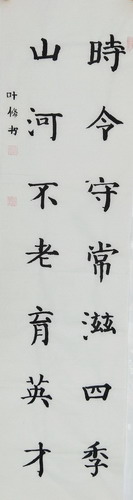 時令守常滋四季
山河不老育英才
叶脩书